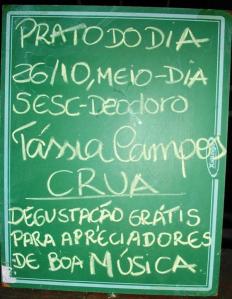 PRATO DO DIA
26/10, MEIO-DIA
SESC-Deodoro
Tássia Campos
CRUA
DEGUSTAÇÃO GRÁTIS
PARA APRECIADORES
DE BOA MÚSICA